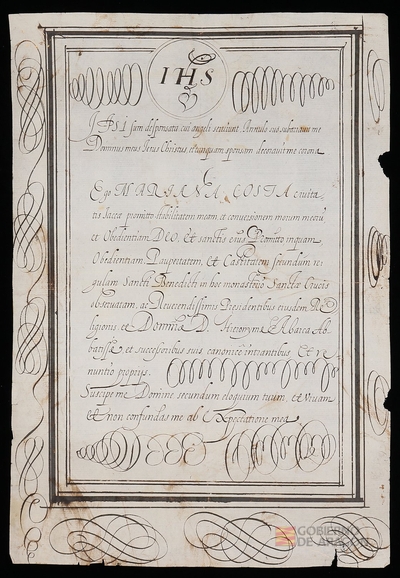 IHS
IPSI sum desponsata cui angeli serviunt. Annulo suo subarravit me
Dominus meus Iesus Christus, et tanquam sponsam decoravit me corona.
Ego MARIANA COSTA civita-
tis Jaccæ promitto stabilitatem meam, et conversionem morum meorũ
et Obedientiam DEO, Et sanctis eius Promitto inquam
Obedientiam Paupertatem, Et Castitatem secundum re-
gulam Sancti Benedicti in hoc monasterio Sanctæ Crucis
observatam, ac Reverendissimis Presidentibus eiusdem Re-
ligionis et Domnæ D. Hieronymæ Abarca Ab-
batissæ et successoribus suis canonicè intrantibus Et re-
nuntio propijs.
Suscipe me Domine secundum eloquium tuum, et vivam
et non confundas me ab Expectatione mea
GOBIERNO
DE ARAGON